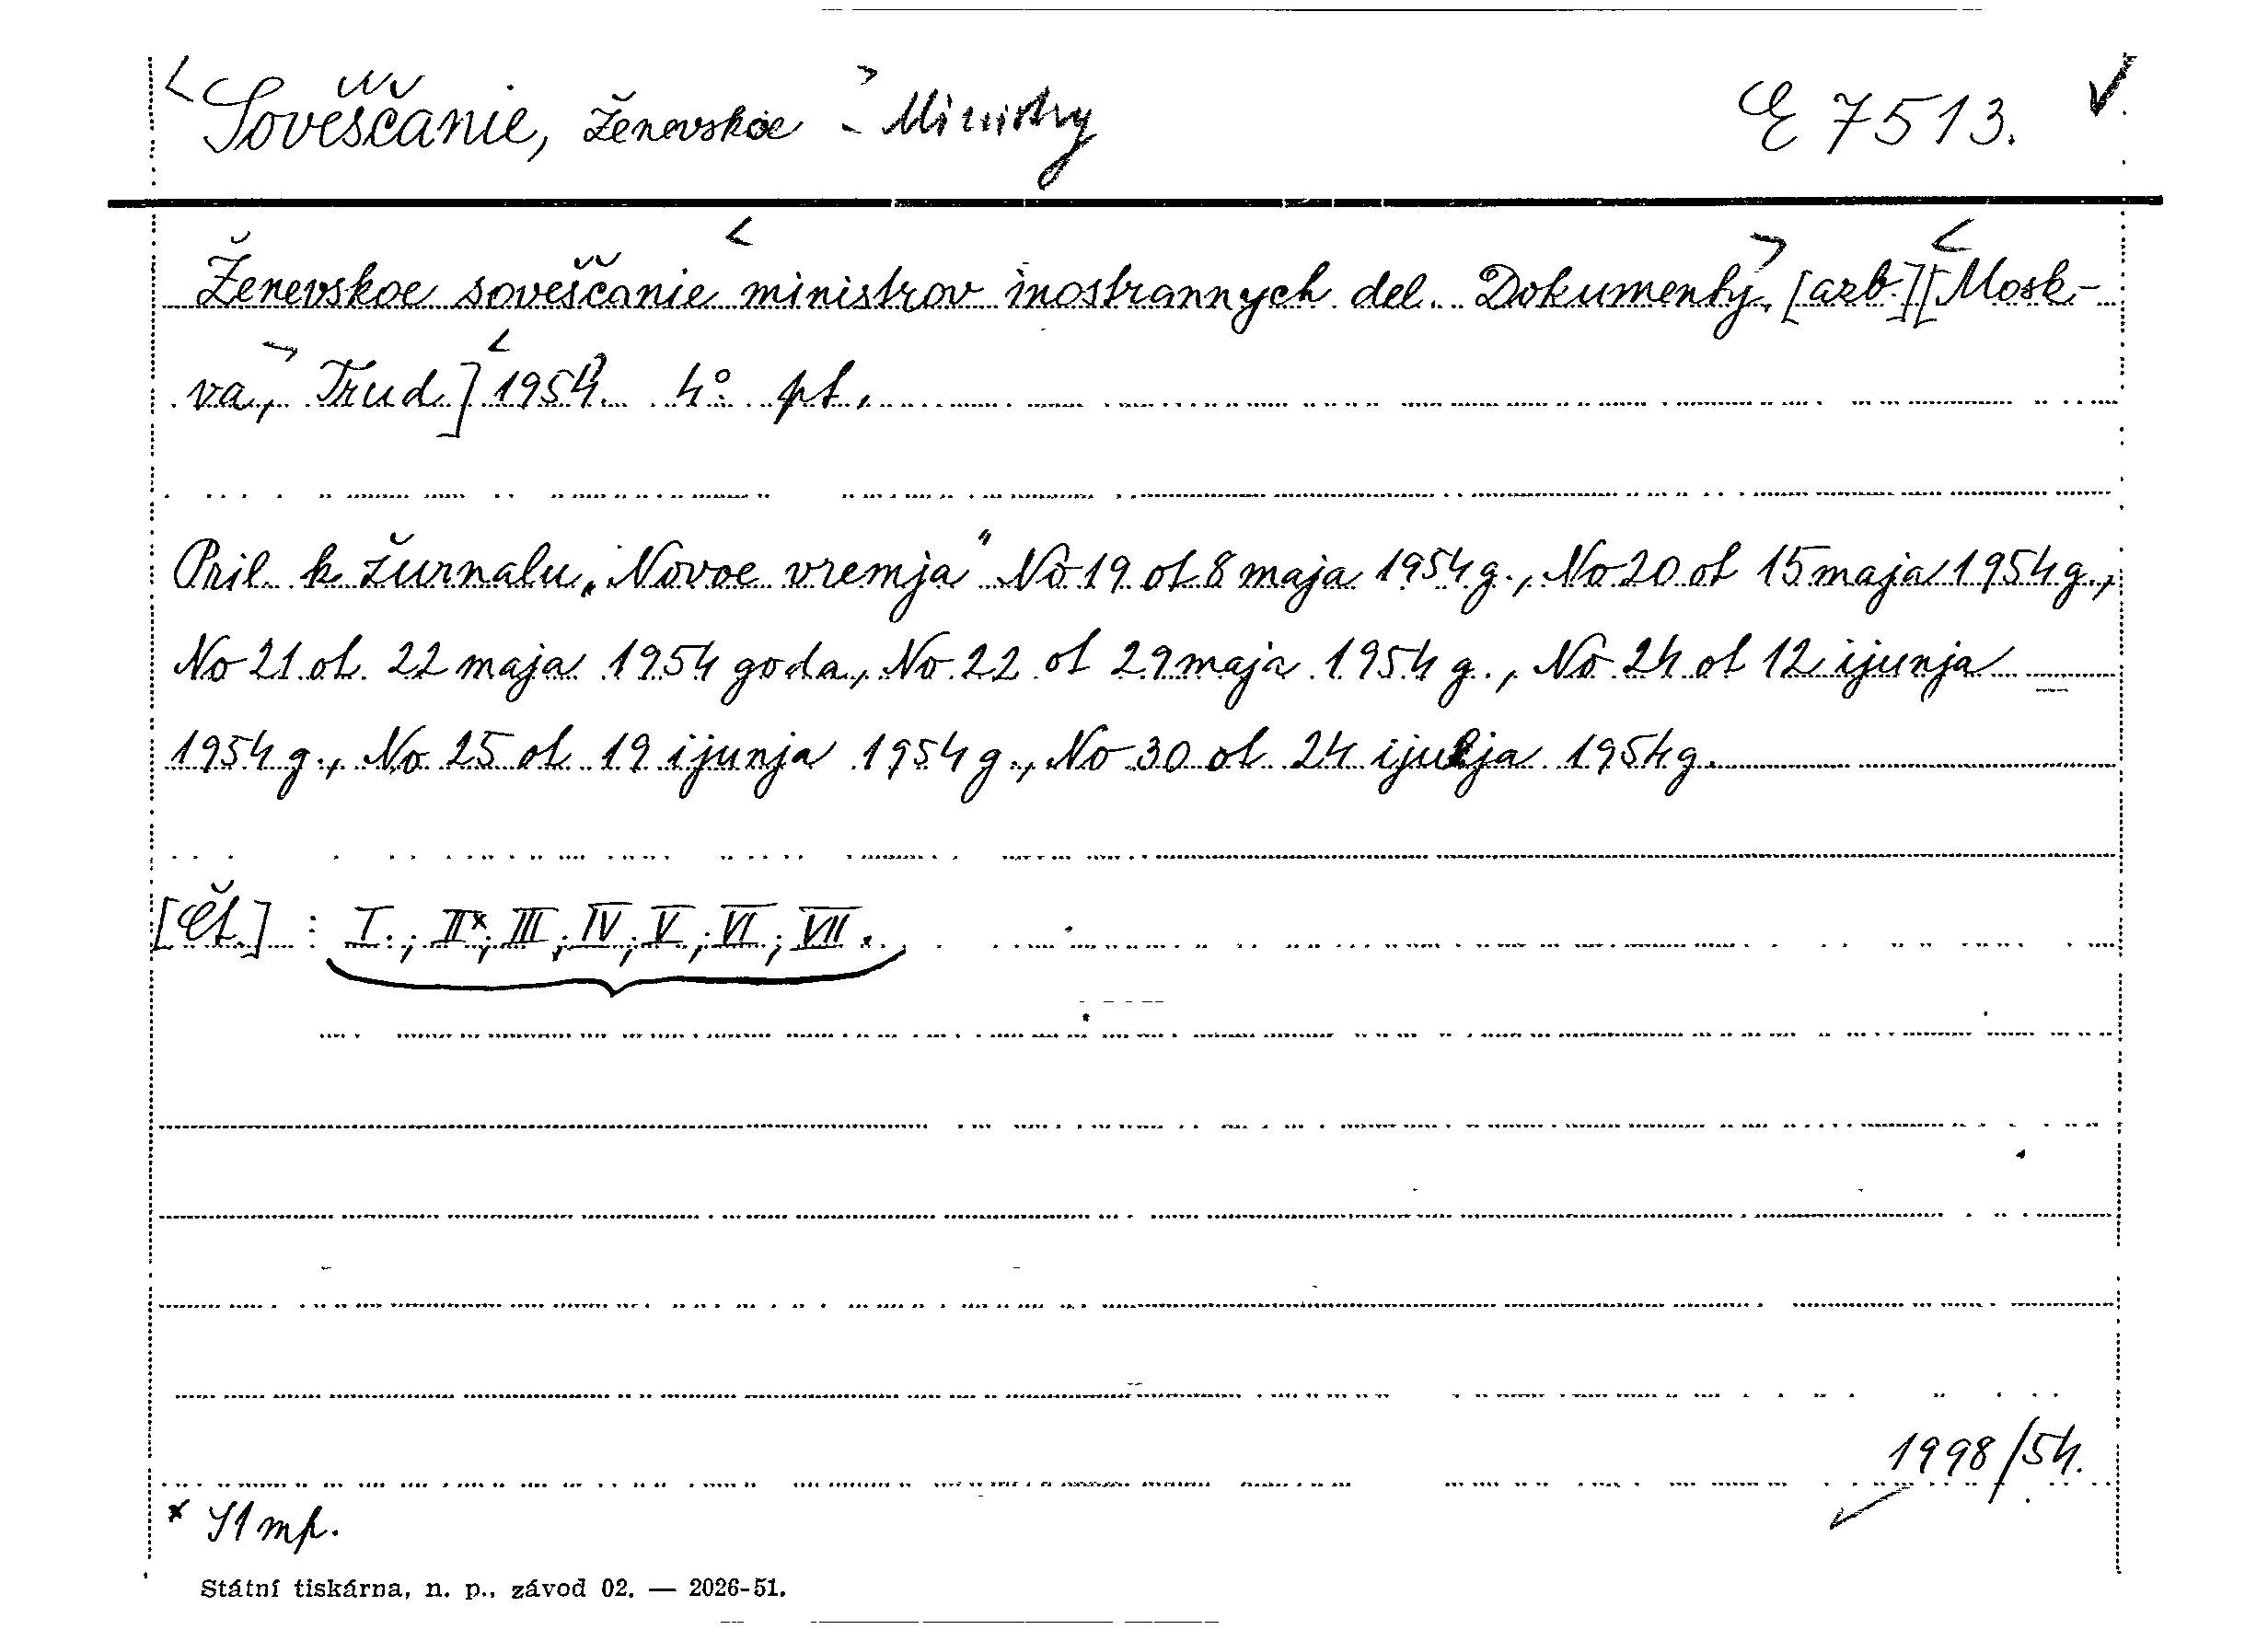 Soveščanie, Ženevskoe - Ministry E 7513.
Ženevskoe soveščanie ministrov inostrannych del. Dokumenty. [azb.][Mosk-
va, Trud] 1954. 4° pt.
Pril. k žurnalu „Novoe vremja" No 19 ot 8 maja 1954 g., No 20 ot 15 maja 1954 g.,
No 21 ot 22 maja 1954 goda, No 22 ot 29 maja 1954 g., No 24 ot 12 ijunja
1954 g., No 25 ot 19 ijunja 1954 g., No 30 ot 24 ijulja 1954 g.
[Čt.] : I.; II x; III; IV; V.; VI; VII.
1998/54.
x mp.
Státní tiskárna, n. p., závod 02. — 2026-51.